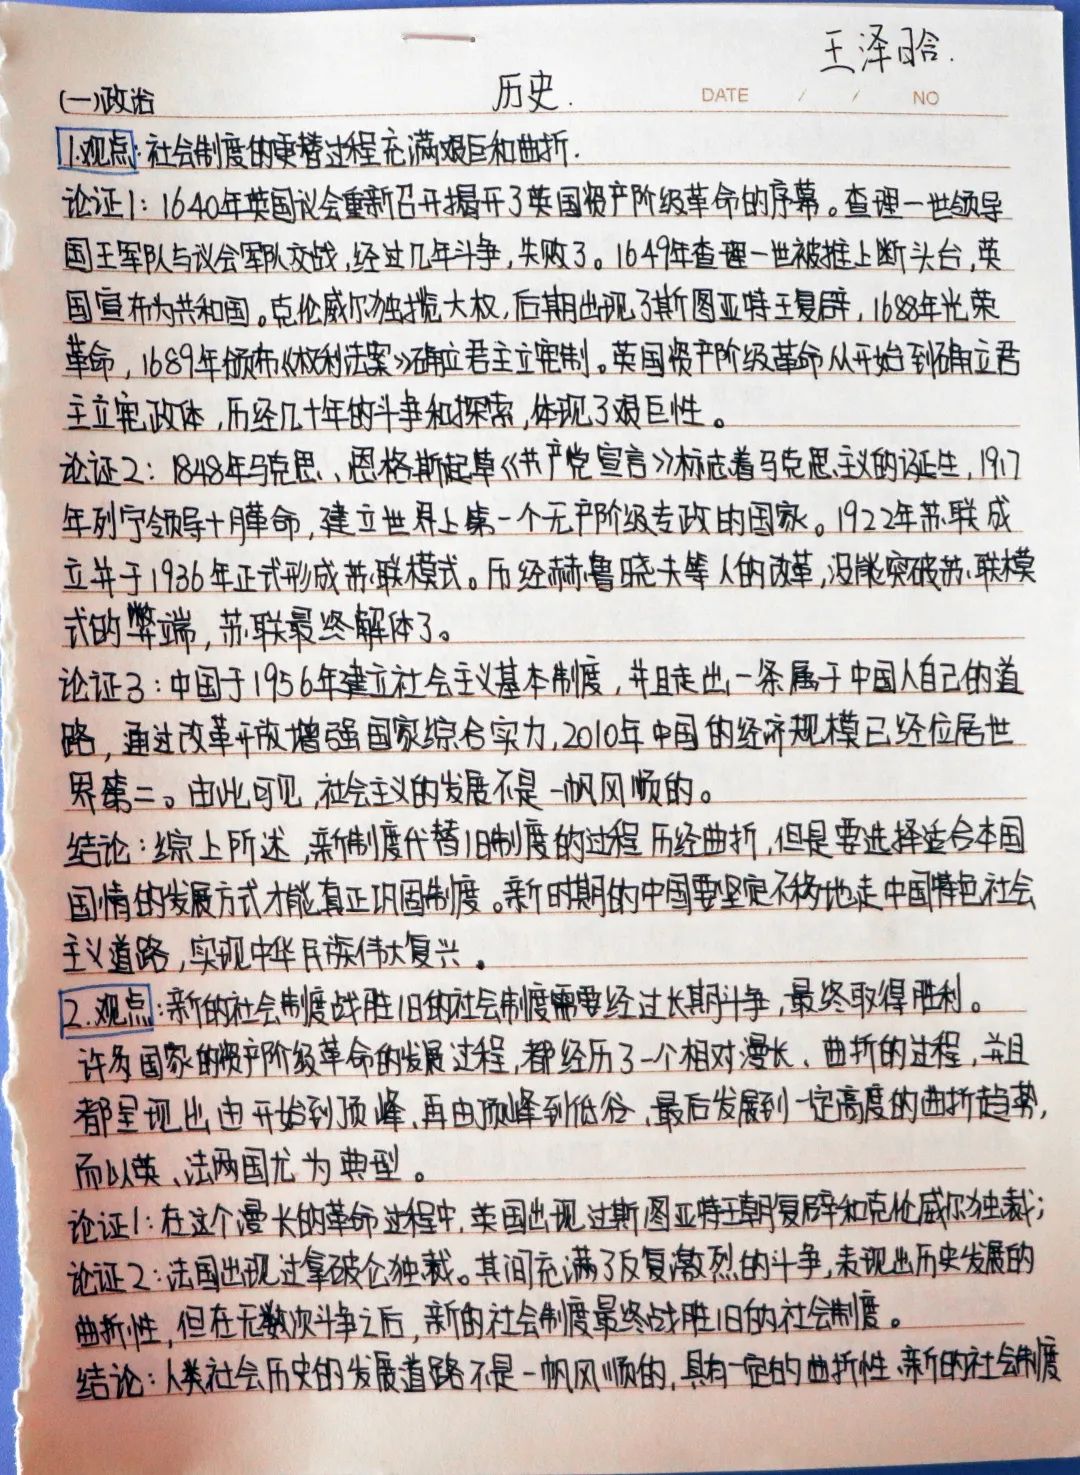 王泽晗.
历史.
DATE / / NO
(一)政治
1.观点:社会制度的更替过程充满艰巨和曲折.
论证1:1640年英国议会重新召开揭开了英国资产阶级革命的序幕。查理一世领导
国王军队与议会军队交战,经过几年斗争,失败了。1649年查理一世被推上断头台,英
国宣布为共和国。克伦威尔独揽大权,后期出现了斯图亚特王复辟,1688年光荣
革命,1689年颁布《权利法案》确立君主立宪制。英国资产阶级革命从开始到确立君
主立宪政体,历经几十年的斗争和探索,体现了艰巨性。
论证2:1848年马克思、恩格斯起草《共产党宣言》标志着马克思主义的诞生,1917
年列宁领导十月革命,建立世界上第一个无产阶级专政的国家。1922年苏联成
立并于1936年正式形成苏联模式。历经赫鲁晓夫等人的改革,没能突破苏联模
式的弊端,苏联最终解体了。
论证3:中国于1956年建立社会主义基本制度,并且走出一条属于中国人自己的道
路,通过改革开放增强国家综合实力,2010年中国的经济规模已经位居世
界第二。由此可见,社会主义的发展不是一帆风顺的。
结论:综上所述,新制度代替旧制度的过程历经曲折,但是要选择适合本国
国情的发展方式才能真正巩固制度。新时期的中国要坚定不移地走中国特色社会
主义道路,实现中华民族伟大复兴。
2.观点:新的社会制度战胜旧的社会制度需要经过长期斗争,最终取得胜利。
许多国家的资产阶级革命的发展过程,都经历了一个相对漫长、曲折的过程,并且
都呈现出由开始到顶峰、再由顶峰到低谷、最后发展到一定高度的曲折趋势,
而以英、法两国尤为典型。
论证1:在这个漫长的革命过程中,英国出现过斯图亚特王朝复辟和克伦威尔独裁;
论证2:法国出现过拿破仑独裁。其间充满了反复激烈的斗争,表现出历史发展的
曲折性,但在无数次斗争之后,新的社会制度最终战胜旧的社会制度。
结论:人类社会历史的发展道路不是一帆风顺的,具有一定的曲折性、新的社会制度